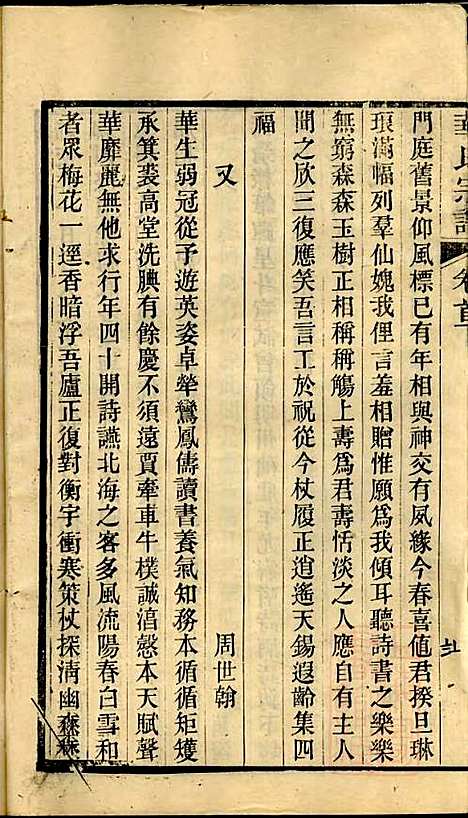 華氏宗譜 卷首
門庭舊景仰風標已有年相與神交有夙緣今春喜值君揆旦琳
琅滿幅列羣仙媿我俚言羞相贈惟願爲我傾耳聽詩書之樂樂
無窮森森玉樹正相稱稱觴上壽爲君壽恬淡之人應自有主人
聞之欣三復應笑吾言工於祝從今杖履正逍遙天錫遐齡集四
福
又
周世翰
華生弱冠從予遊英姿卓犖鸞鳳儔讀書養氣知務本循循矩矱
承箕裘高堂洗腆有餘慶不須遠賈牽車牛樸誠湻慤本天賦聲
華靡麗無他求行年四十開詩讌北海之客多風流陽春白雪和
者眾梅花一逕香暗浮吾廬正復對衡宇衝寒策杖探淸幽森森